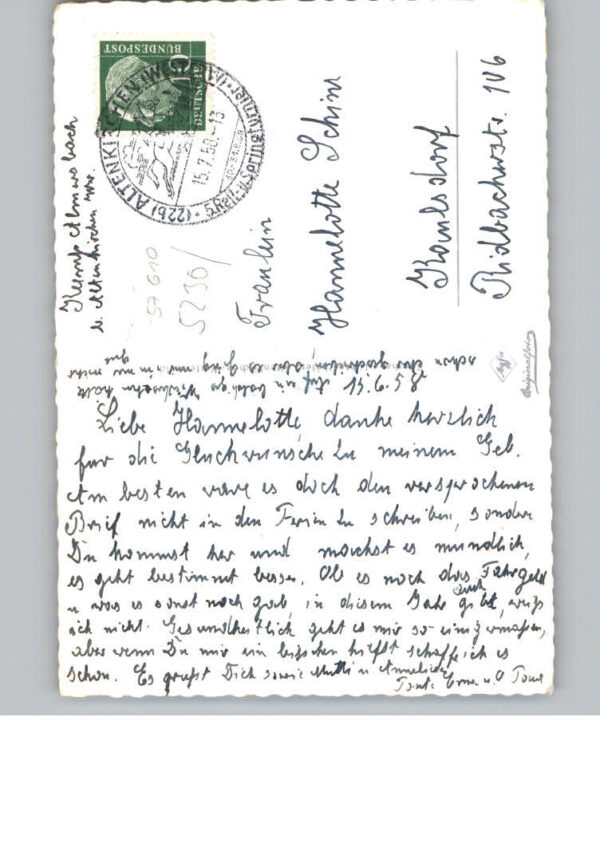 DEUTSCHE
BUNDESPOST
10
(22b) ALTENKIRCHEN (WESTERW)
15.7.58.-13
5. Reit- u. Springturnier
Altenkirchen
57610
5230/
Fräulein
Hannelotte Schim
Karlsdorf
106
Agfa
Originalfoto
15.6.58
Liebe Hannelotte danke herzlich
für die Glückwünsche zu meinem Geb.
Am besten wäre es doch den versprochenen
Brief nicht in den Ferien zu schreiben, sondern
Du kommst her und machst es mündlich,
es geht bestimmt besser. Ob es noch das Fahrgeld
u was es sonst noch gab, in diesem Jahr auch gibt, weiß
ich nicht. Gesundheitlich geht es mir so einigermaßen,
aber wenn Du mir ein bißchen hilfst schaffe ich es
schon. Es grüßt Dich sowie Mutti u Anneliese
Tante Erna u. O